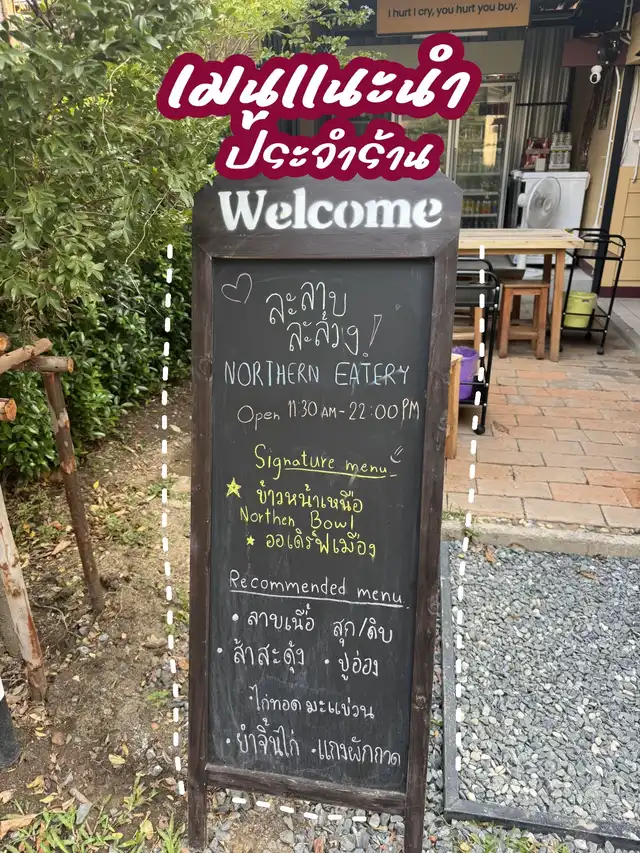 I hurt I cry, you hurt you buy.
เมนูแนะนำ
ประจำร้าน
Welcome
ละลาบ
ละล้วง!
NORTHERN EATERY
Open 11:30 AM - 22:00 PM
Signature menu
ข้าวหน้าเหนือ
Northen Bowl
ออเดิร์ฟเมือง
Recommended menu
• ลาบเนื้อ สุก/ดิบ
• ส้าสะดุ้ง • ปูอ่อง
ไก่ทอดมะแขว่น
• ยำจิ้นไก่ • แกงผักกาด